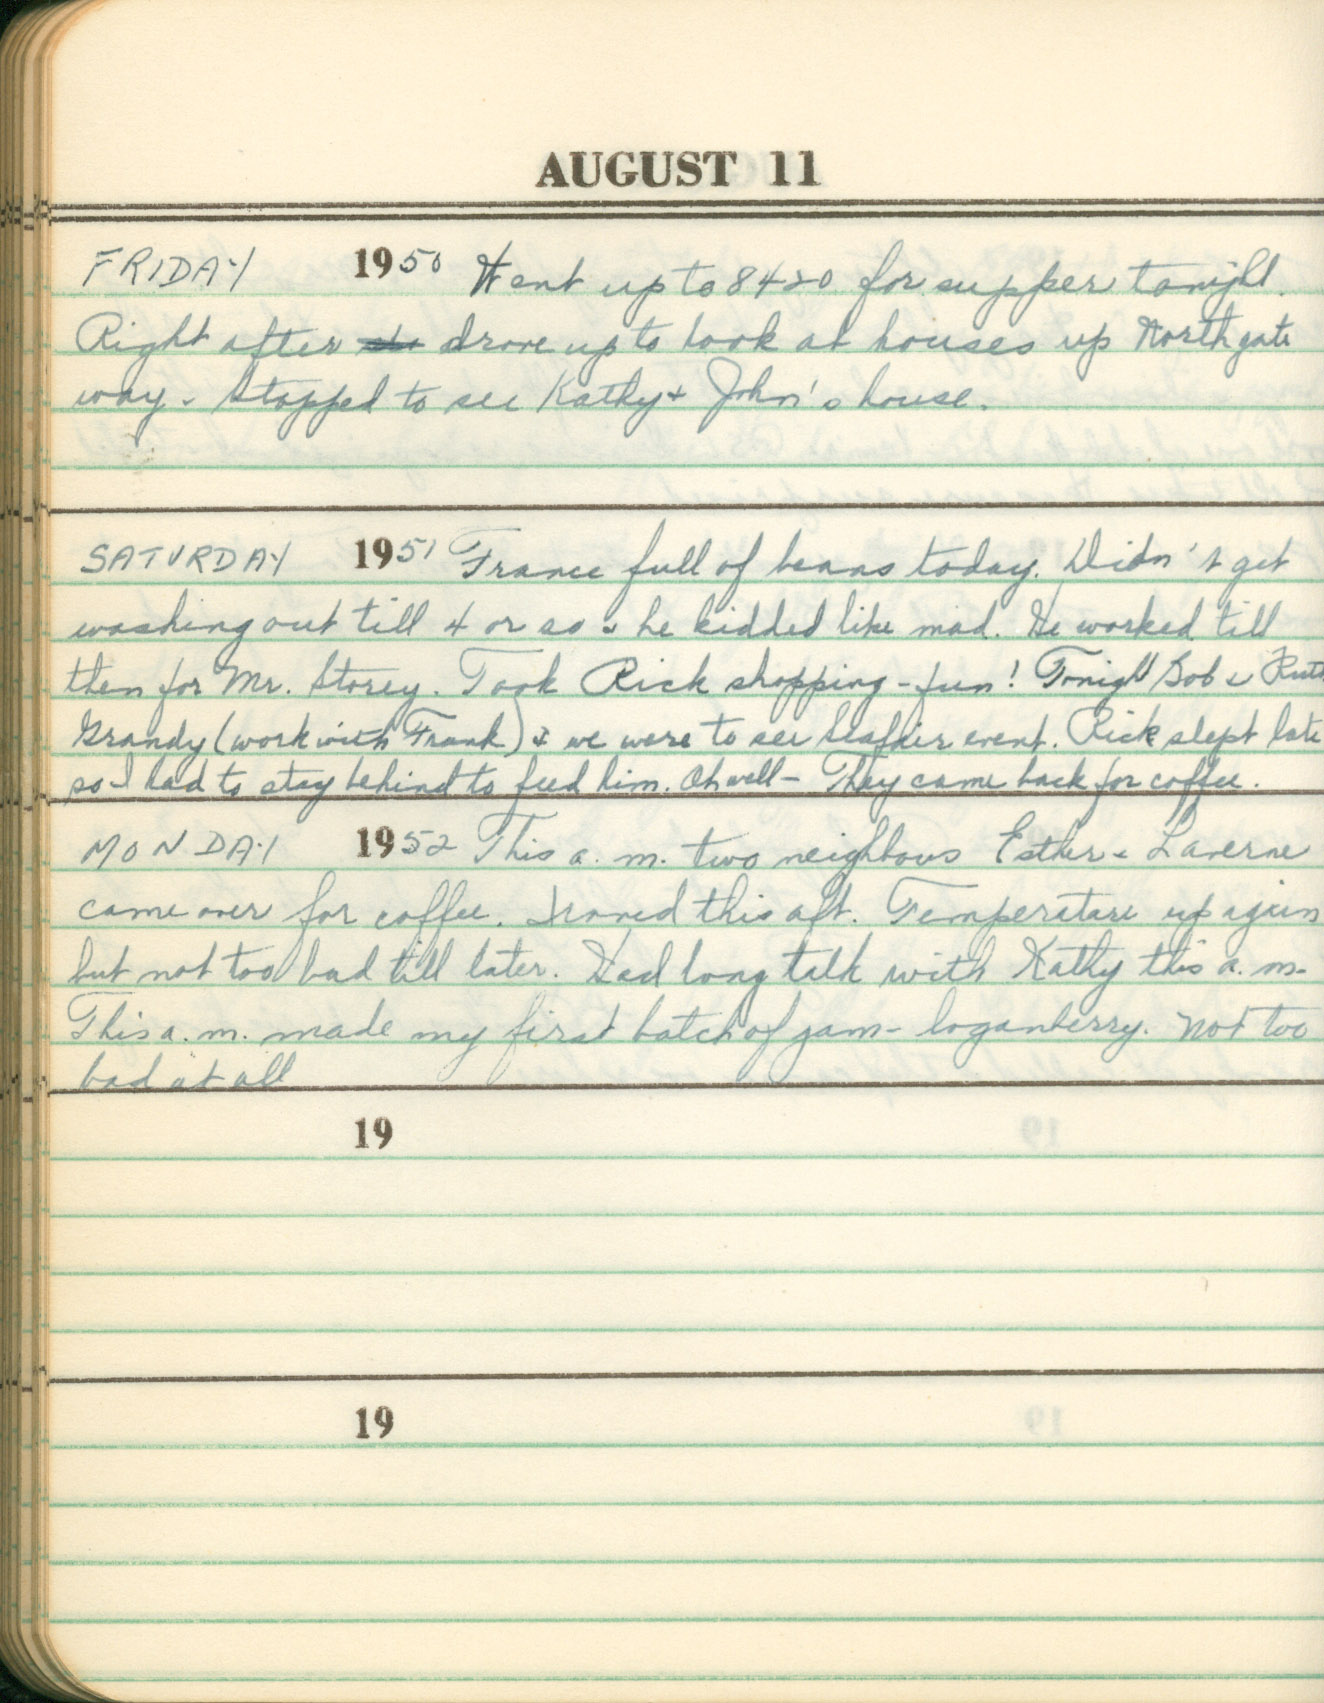 AUGUST 11
FRIDAY 1950 Went up to 8420 for supper tonight.
Right after drove up to look at houses up Northgate
way. Stopped to see Kathy + John's house.
SATURDAY 1951 France full of beans today. Didn't get
washing out till 4 or so & he kidded like mad. He worked till
then for Mr. Storey. Took Rick shopping - fun! Tonight Bob & Ruth
Grandy (work with Frank) & we were to see Seafair event. Rick slept late
so I had to stay behind to feed him. Oh well - They came back for coffee.
MONDAY 1952 This a.m. two neighbours Esther & Laverne
came over for coffee. Ironed this aft. Temperature up again
but not too bad till later. Had long talk with Kathy this a.m.
This a.m. made my first batch of jam - loganberry. Not too
bad at all
19
19